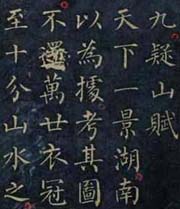 九疑山賦
天下一景湖南
以為據考其圖
不遷萬世衣冠
至十分山水之